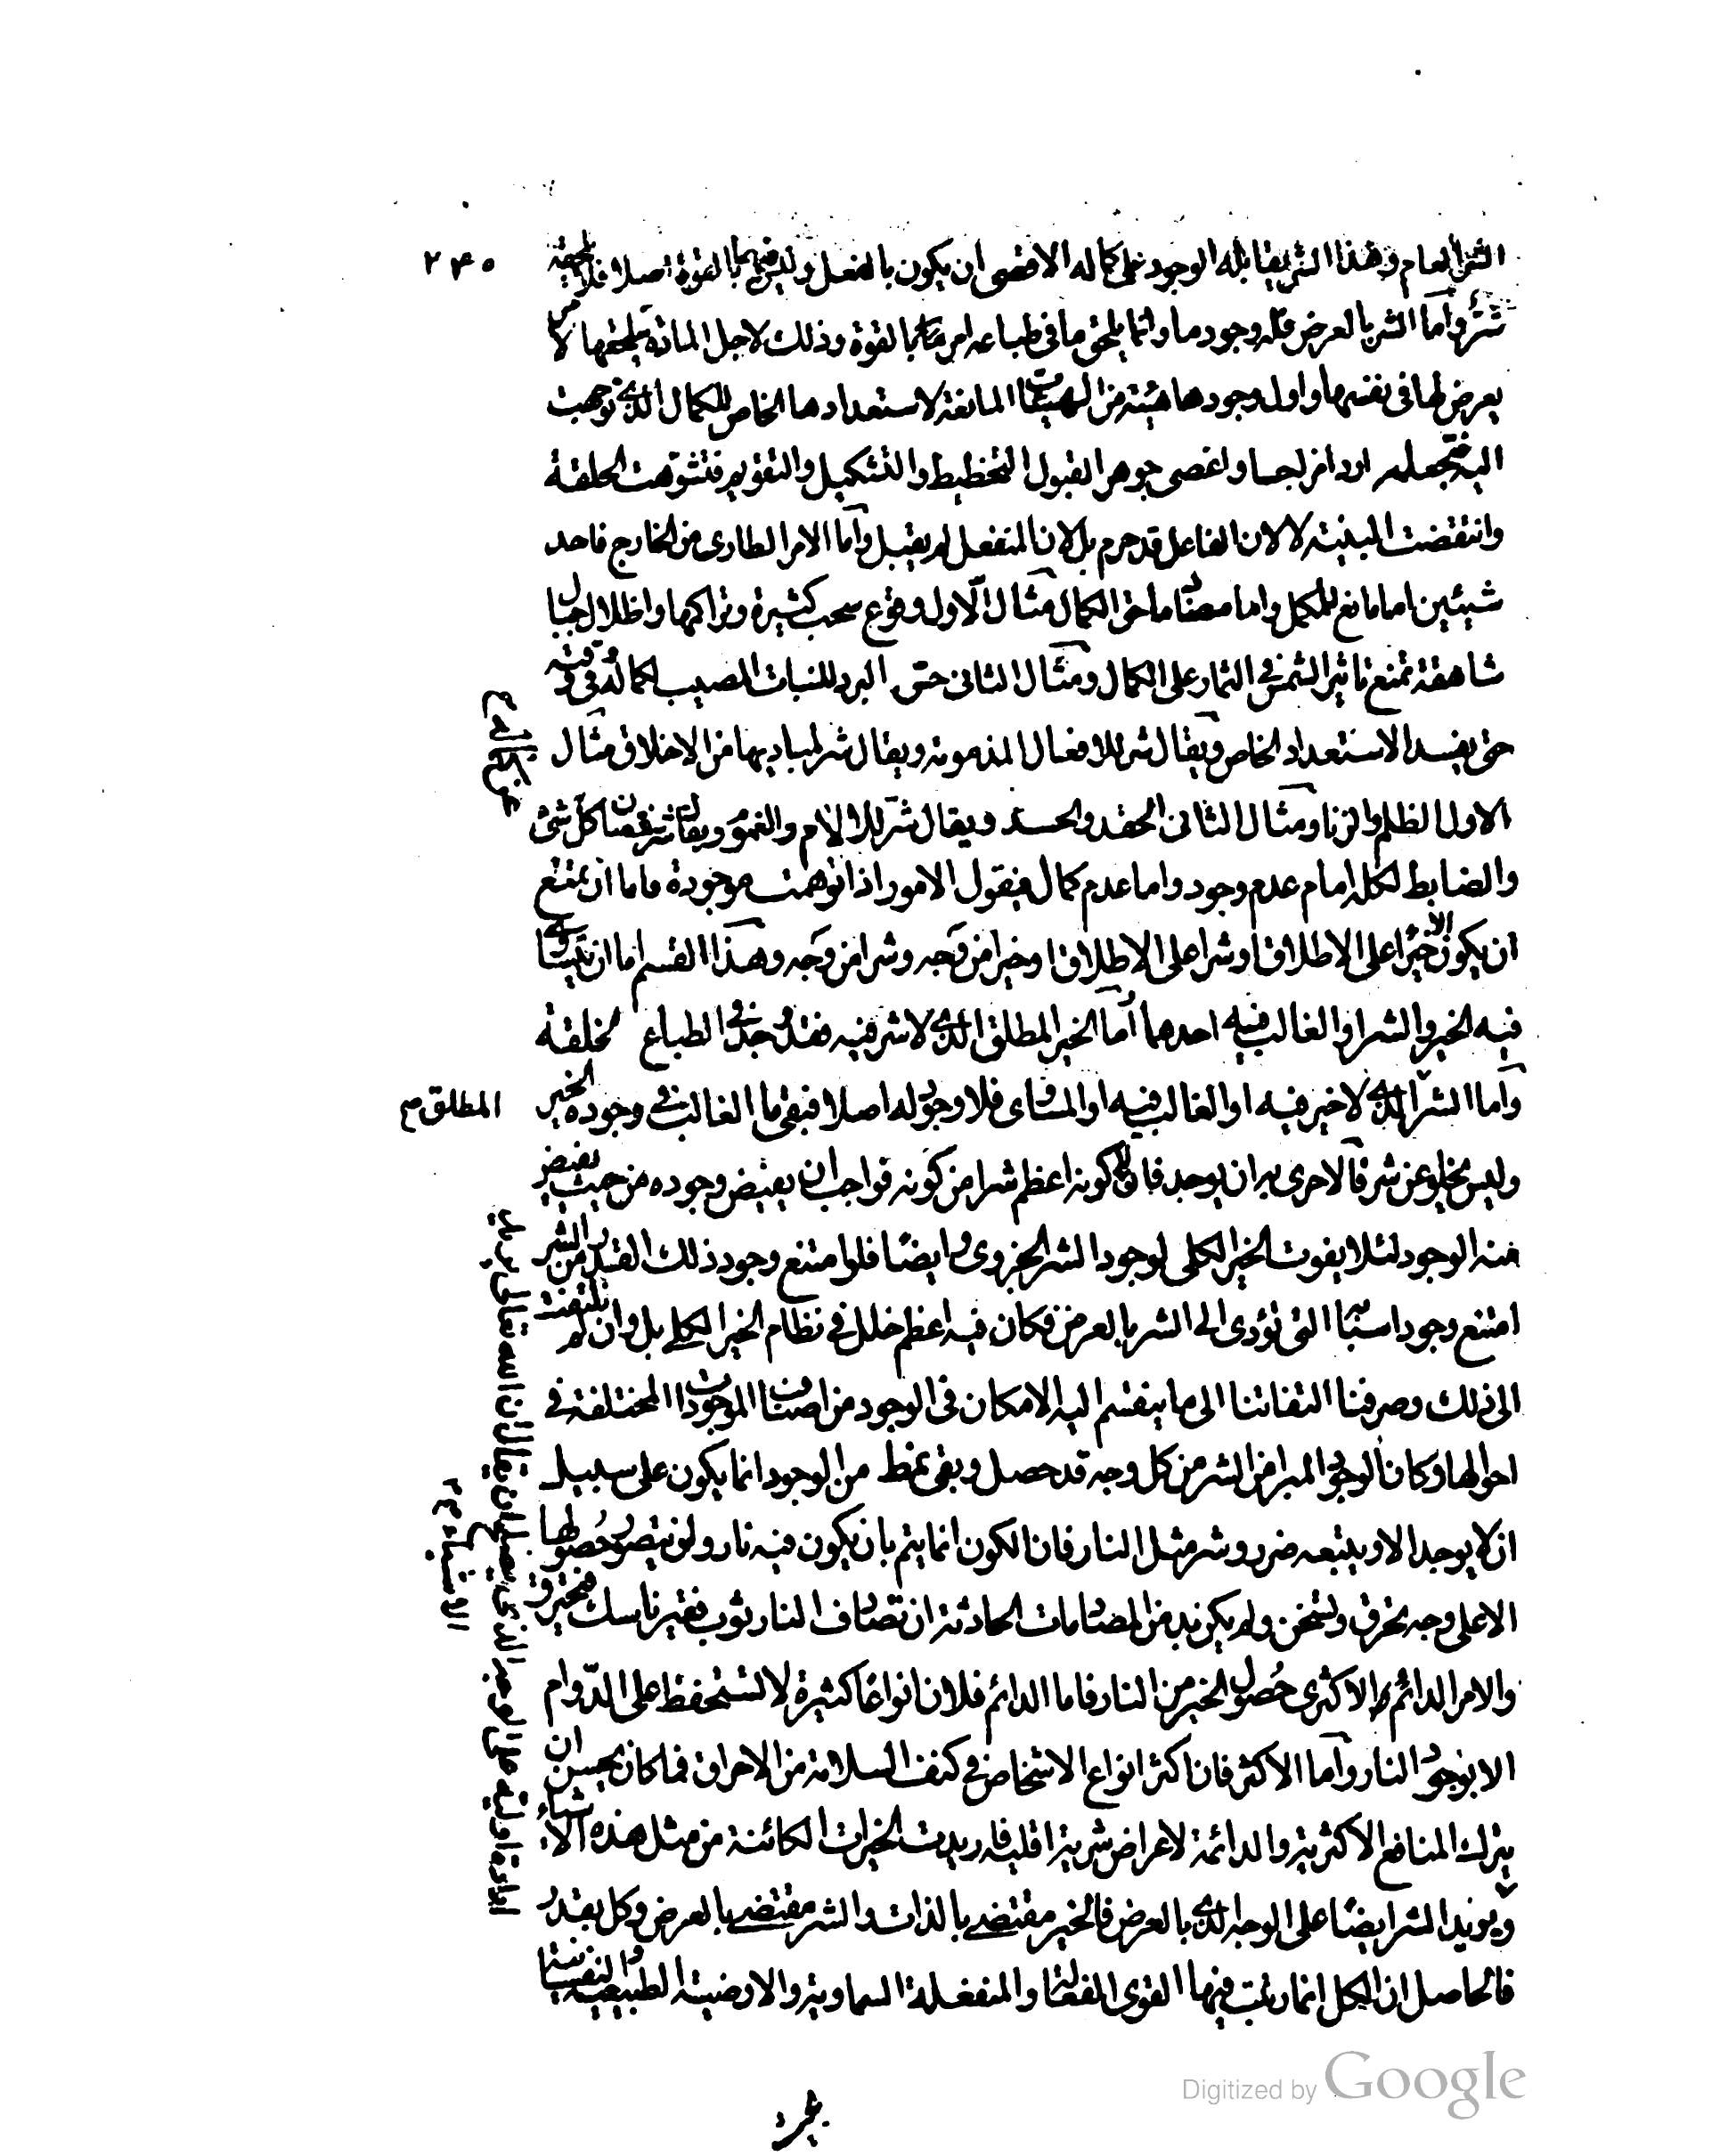 الشر العام وهذا الشر يقابله الوجود على كماله الاقصى ان يكون بالفعل وليس فيهما بالقوة اصلا فلا يلحقه
٢٤٥
شر واما الشر بالعرض فله وجود ما وانما يلحق ما فى طباعه امر ما بالقوة وذلك لاجل المادة يلحقها لامر
يعرض لها فى نفسها واول وجودها هيئة من الهيئات المانعة لاستعدادها الخاص للكمال الذى توجهت
اليه فتجعله اردا مزاجا واعصى جوهرا لقبول التخطيط والتشكيل والتقويم فتشوهت الخلقة
وانتقضت البنية لا لان الفاعل قد حرم بل لان المنفعل لم يقبل وأما الامر الطارى من الخارج فاحد
شيئين اما مانع للمكمل واما مضاد ماحق الكمال مثال الاول وقوع سحب كثيرة وتراكمها واظلال جبال
شاهقة تمنع تاثير الشمس فى الثمار على الكمال ومثال الثانى حبس البرد للنبات المصيب لكماله فى وقته
حتى يفسد الاستعداد الخاص ويقال شر للافعال المذمومة ويقال شر لمباديها من الاخلاق مثال
الاول الظلم والزنا ومثال الثانى الحقد والحسد ويقال شر للالام والغموم ويقال شر لنقصان كل شئ
والضابط لكله اما عدم وجود واما عدم كمال فنقول الامور اذا توهمت موجودة فاما ان يمتنع
ان يكون الا خيرا على الاطلاق او شرا على الاطلاق او خيرا من وجه وشرا من وجه وهذا القسم اما ان يتساوى
فيه الخير والشر او الغالب فيه احدهما أما الخير المطلق الذى لا شر فيه فقد وجد فى الطباع لخلقة
وأما الشر الذى لا خير فيه او الغالب فيه او المساوى فلا وجود له اصلا فبقى ما الغالب فى وجوده الخير
المطلق م
وليس يخلو عن شر فالاحرى به ان يوجد فان لا كونه اعظم شرا من كونه فواجب ان يفيض وجوده من حيث يفيض
منه الوجود لئلا يفوت الخير الكلى لوجود الشر الجزوى وايضا فلو امتنع وجود ذلك القدر من الشر
امتنع وجود اسبابه التى تؤدى الى الشر بالعرض فكان فيه اعظم خلل فى نظام الخير الكلى بل وان لم نلتفت
الى ذلك وصرفنا التفاتنا الى ما ينقسم اليه الامكان فى الوجود من اصناف الموجودات المختلفة فى
احوالها وكان الوجود المبرا من الشر من كل وجه قد حصل وبقى نمط من الوجود انما يكون على سبيل
ان لا يوجد الا ويتبعه ضرر وشر مثل النار فان الكون انما يتم بان يكون فيه نار ولن يتصور حصولها
الا على وجه تحرق وتسخن ولم يكن بد من المصادمات الحادثة ان تصادف النار ثوب فقير ناسك فيحترق
والامر الدائم والاكثرى حصول الخير من النار فاما الدائم فلان انواعا كثيرة لا تستحفظ على الدوام
الا بوجود النار وأما الاكثر فان اكثر انواع الاشخاص فى كنف السلامة من الاحراق فما كان يحسن ان
يترك المنافع الاكثرية والدائمة لاعراض شرية اقلية فاريدت الخيرات الكائنة من مثل هذه الاشياء
ويريد الشر ايضا على الوجه الذى بالعرض فالخير مقتضى بالذات والشر مقتضى بالعرض وكل بقدر
فالحاصل ان الكل انما رتبت فيها القوى الفعالة والمنفعلة السماوية والارضية الطبيعية والنفسانية